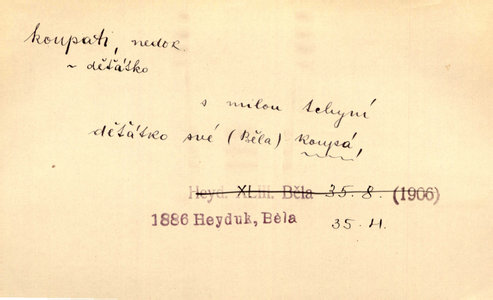 koupati, nedok.
~ děťátko
s milou tchyní
děťátko své (Běla) koupá,
Heyd. XLIII. Běla 35. 8. (1906)
1886 Heyduk, Běla 35. H.